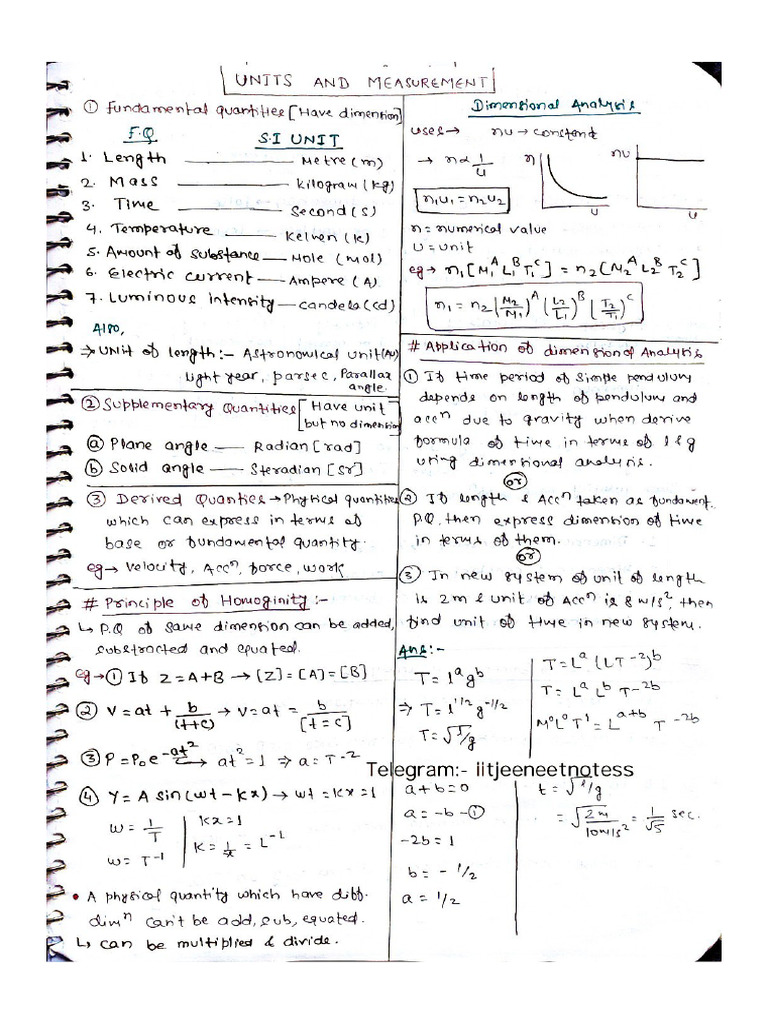 UNITS AND MEASUREMENT
① Fundamental quantities [Have dimention]
F.Q S.I UNIT
1. Length — Metre (m)
2. Mass — kilogram (kg)
3. Time — Second (s)
4. Temperature — Kelven (k)
5. Amount of substance — Mole (mol)
6. Electric current — Ampere (A)
7. Luminous Intensity — candela (cd)
Also,
⇒ Unit of length :- Astronomical unit (AU)
light year, parsec, Parallax
angle.
② Supplementary Quantities [Have unit
but no dimention]
ⓐ Plane angle — Radian [rad]
ⓑ Solid angle — Steradian [sr]
③ Derived Quanties → Physical quantities
which can express in terms of
base or fundamental quantity.
eg → velocity, Accⁿ, force, work
# Principle of Homoginity :-
↳ P.Q of same dimension can be added,
substracted and equated.
eg → ① If Z = A + B → [Z] = [A] = [B]
② V = at + b/(t+c) → V = at = b/[t = c]
③ P = P₀e^-at² → at² = 1 ⇒ a = T⁻²
④ Y = A sin(wt - kx) → wt = kx = 1
w = 1/T
w = T⁻¹
kx = 1
K = 1/x = L⁻¹
• A physical quantity which have diff.
dimⁿ can't be add, sub, equated.
↳ can be multiplied & divide.
Dimensional Analysis
uses → nu → constant
→ n ∝ 1/u
n
u
nu
u
n₁u₁ = n₂u₂
n = numerical value
u = unit
eg → n₁[M₁^A L₁^B T₁^C] = n₂[M₂^A L₂^B T₂^C]
n₁ = n₂ (M₂/M₁)^A (L₂/L₁)^B (T₂/T₁)^C
# Application of dimension of Analysis
① If time period of simple pendulum
depends on length of pendulum and
accⁿ due to gravity when derive
formula of time in terms of l & g
using dimensional analysis.
or
② If length & Accⁿ taken as fundament.
P.Q, then express dimention of time
in terms of them.
or
③ In new system of unit of length
is 2m & unit of Accⁿ is 8 m/s², then
find unit of time in new system.
Ans :-
T = l^a g^b
⇒ T = l^1/2 g^-1/2
T = √l/g
T = L^a (LT⁻²)^b
T = L^a L^b T^-2b
M⁰L⁰T¹ = L^a+b T^-2b
Telegram:- iitjeeneetnotess
a + b = 0
a = -b -①
-2b = 1
b = -1/2
a = 1/2
t = √l/g
= √2m/10m/s² = 1/√5 sec.